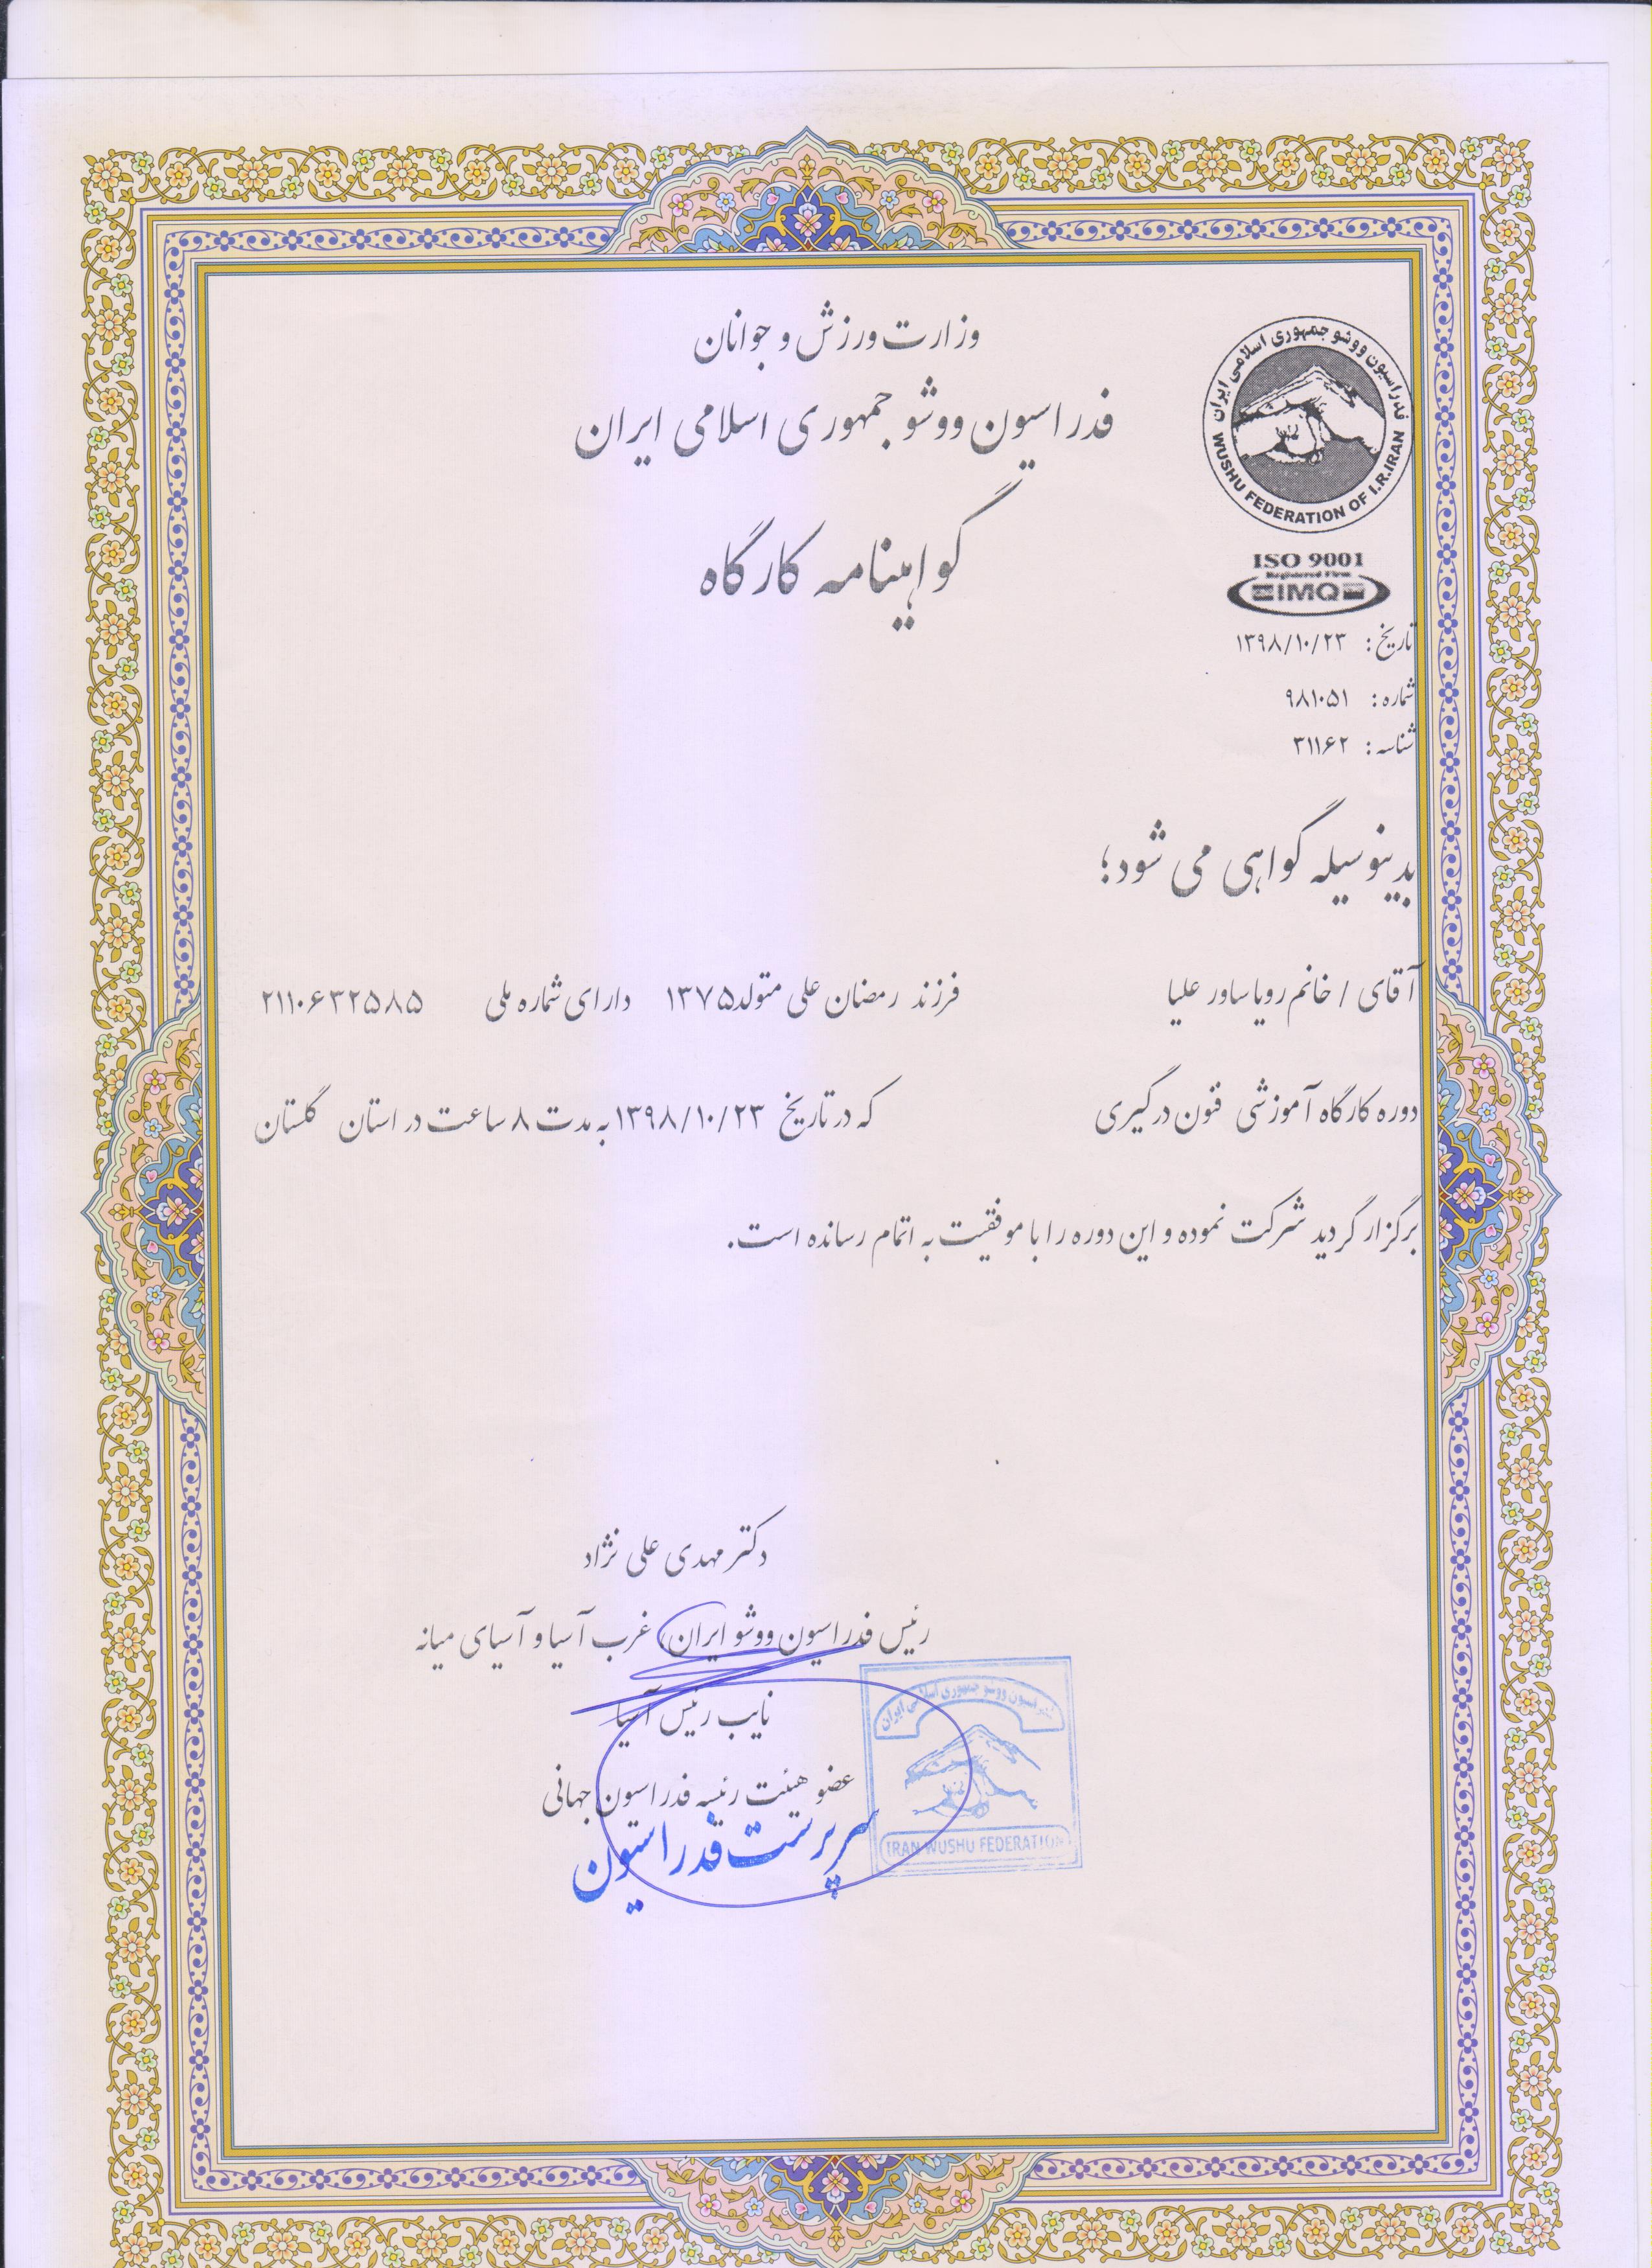 وزارت ورزش و جوانان
فدراسیون ووشو جمهوری اسلامی ایران
گواهینامه کارگاه
فدراسیون ووشو جمهوری اسلامی ایران
WUSHU FEDERATION OF I.R.IRAN
ISO 9001
Registered Firm
IMQ
تاریخ: ۱۳۹۸/۱۰/۲۳
شماره: ۹۸۱۰۵۱
شناسه: ۳۱۱۶۲
بدینوسیله گواهی می شود؛
آقای / خانم رویا ساور علیا فرزند رمضان علی متولد ۱۳۷۵ دارای شماره ملی ۲۱۱۰۶۳۲۵۸۵
دوره کارگاه آموزشی فنون درگیری که در تاریخ ۱۳۹۸/۱۰/۲۳ به مدت ۸ ساعت در استان گلستان
برگزار گردید شرکت نموده و این دوره را با موفقیت به اتمام رسانده است.
دکتر مهدی علی نژاد
رئیس فدراسیون ووشو ایران، غرب آسیا و آسیای میانه
نایب رئیس آسیا
عضو هیئت رئیسه فدراسیون جهانی
سرپرست فدراسیون
فدراسیون ووشو جمهوری اسلامی ایران
IRAN WUSHU FEDERATION